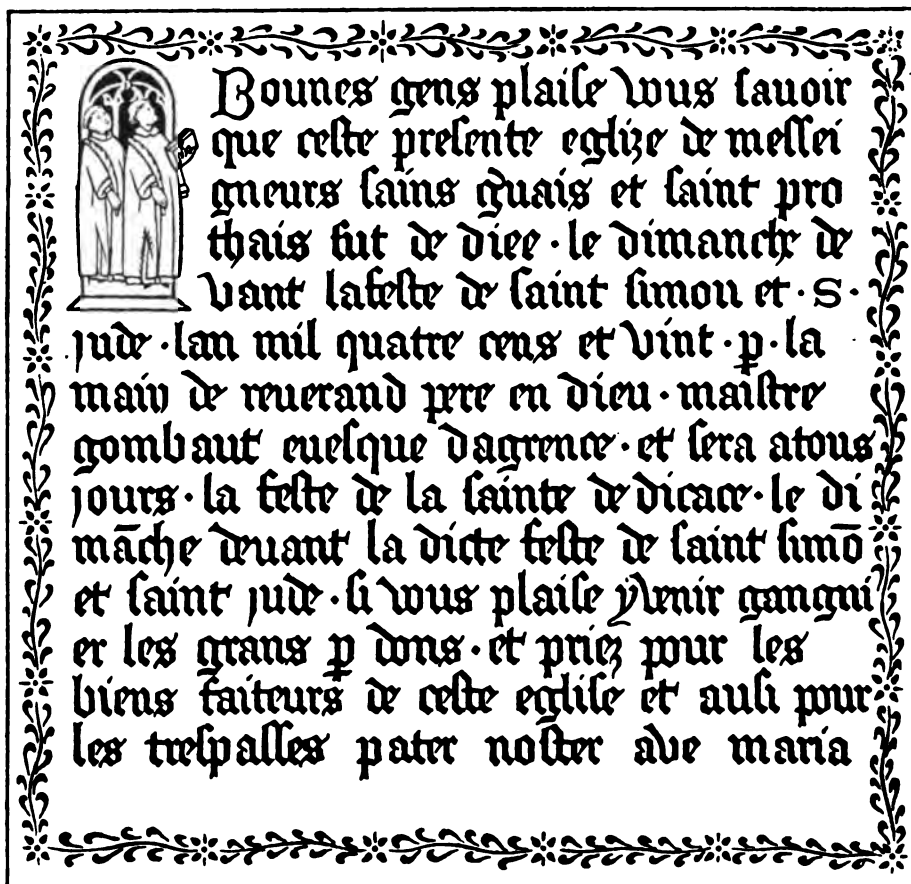 Bounes gens plaise vous sauoir
que ceste presente eglize de messei
gneurs sains g̃uais et saint pro
thais fut de diee · le dimanche de
vant lafeste de saint simou et · s ·
jude · lan mil quatre cens et vint · ꝑ · la
main de reuerand pere en dieu · maistre
gombaut euesque dagrence · et sera atous
jours · la feste de la sainte de dicace · le di
mãche deuant la dicte feste de saint simõ
et saint jude · si vous plaise y venir gangni
er les grans ꝑ dons · et priez pour les
biens faiteurs de ceste eglise et ausi pour
les trespasses pater noster ave maria